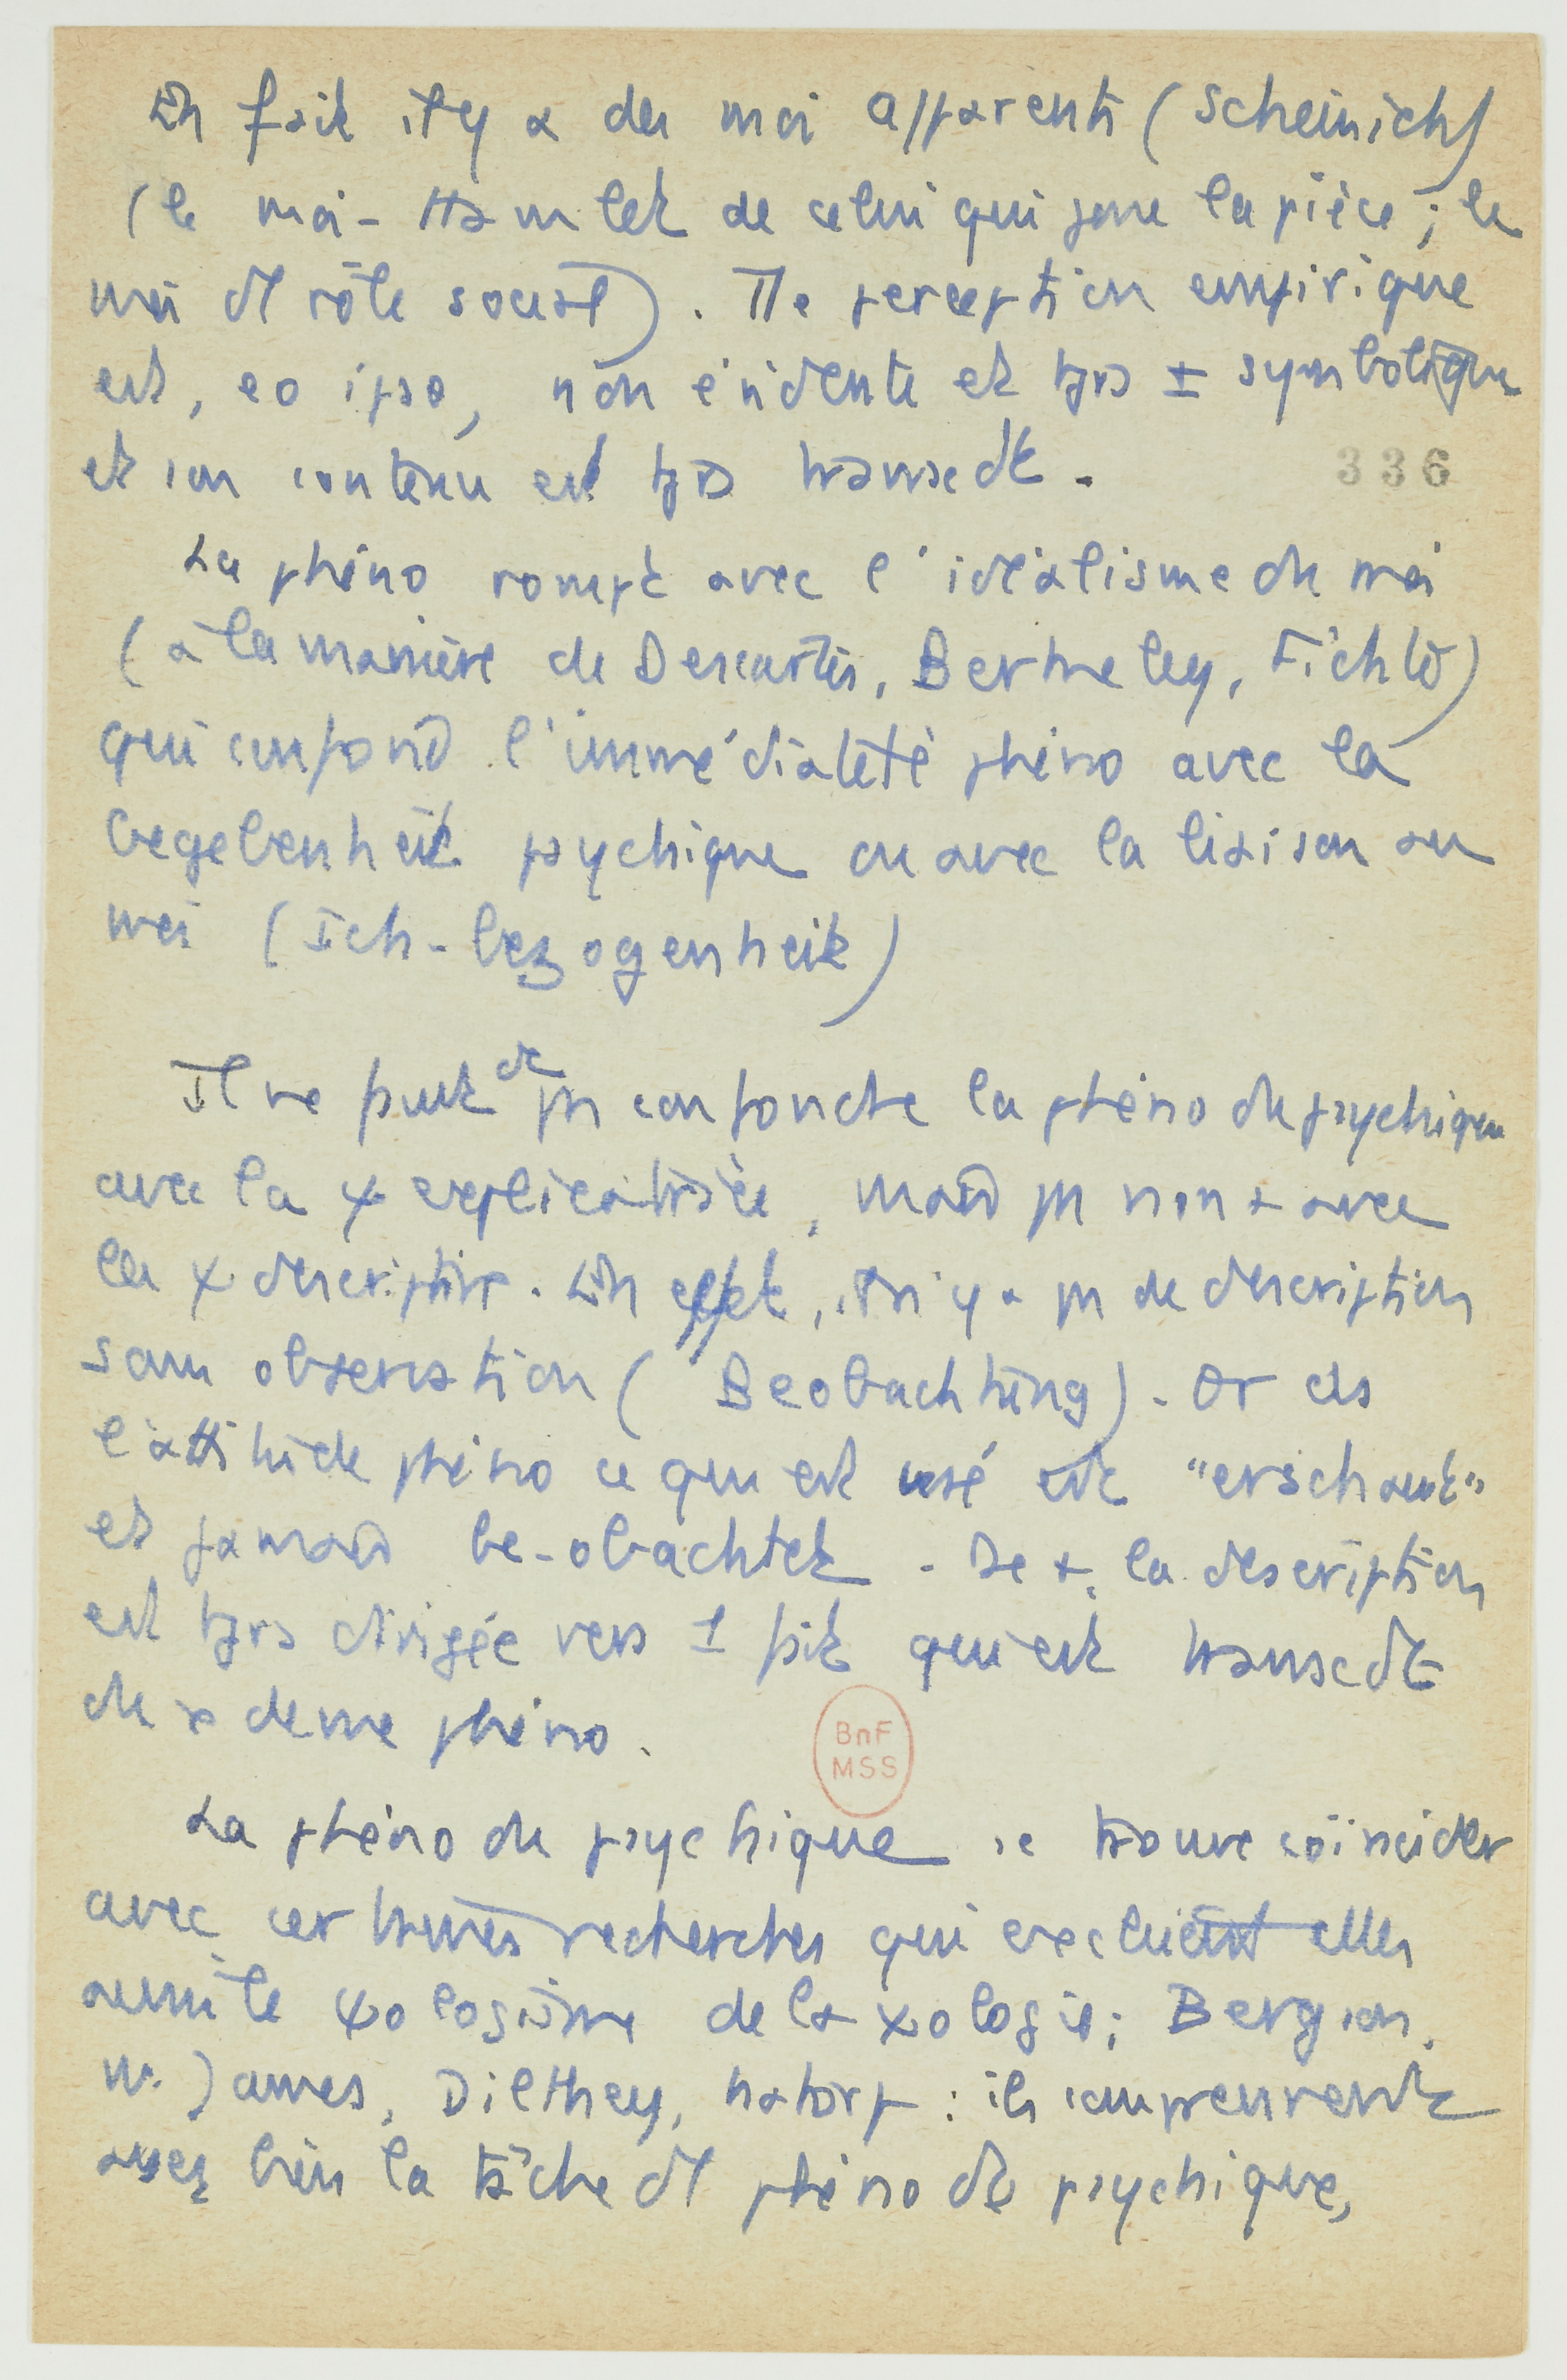 En fait il y a des moi apparents (Scheinich)
(le moi-Hamlet de celui qui joue la pièce ; le
moi dl rôle social). Tte perception empirique
est, eo ipso, non évidente et tjrs ± symbolique
et son contenu est tjrs transcdt.
336
La phéno rompt avec l'idéalisme du moi
(à la manière de Descartes, Berkeley, Fichte)
qui confond l'immédiateté phéno avec la
begebenheit psychique ou avec la liaison au
moi (Ich-bezogenheit)
Il ne faut dc pas confondre la phéno du psychique
avec la ψ explicatrice, mais pas non + avec
la ψ descriptive. En effet, il n'y a pas de description
sans observation (Beobachtung). Or ds
l'attitude phéno ce qui est visé est "erschaut"
et jamais be-obachtet. De +, la description
est tjrs dirigée vers 1 fait qui est transcdt
du domaine phéno.
La phéno du psychique se trouve coïncider
avec certaines recherches qui excluent elles
aussi le ψologisme de la ψologie ; Bergson,
W. James, Dilthey, Natorp : ils comprennent
assez bien la tâche dl phéno du psychique,
BnF
MSS